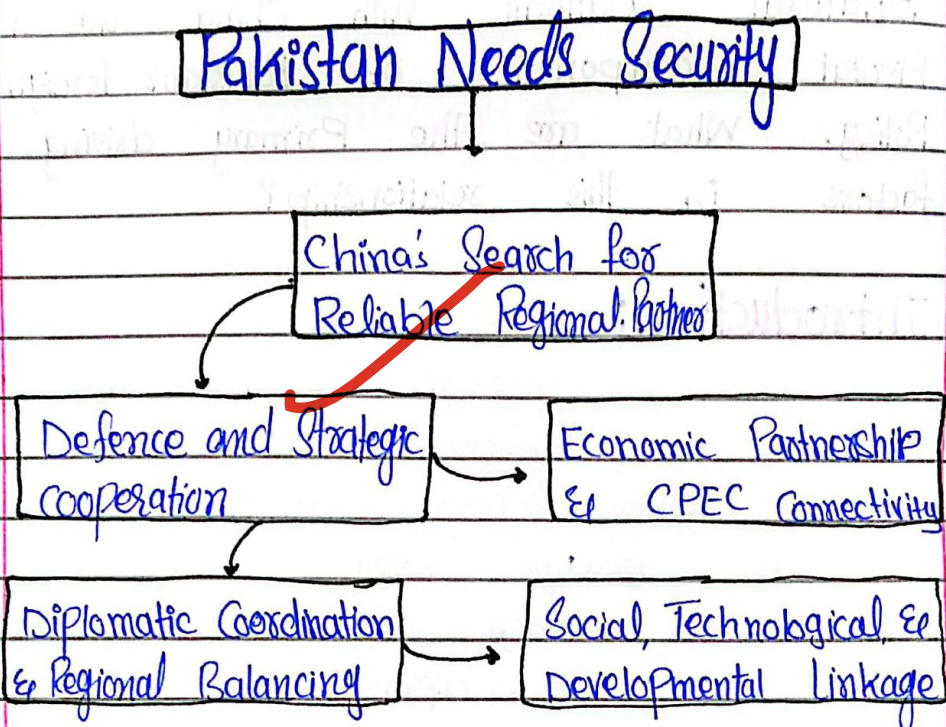 Pakistan Needs Security
China's Search for
Reliable Regional Partner
Defence and Strategic
Cooperation
Economic Partnership
& CPEC Connectivity
Diplomatic Coordination
& Regional Balancing
Social, Technological, &
Developmental Linkage